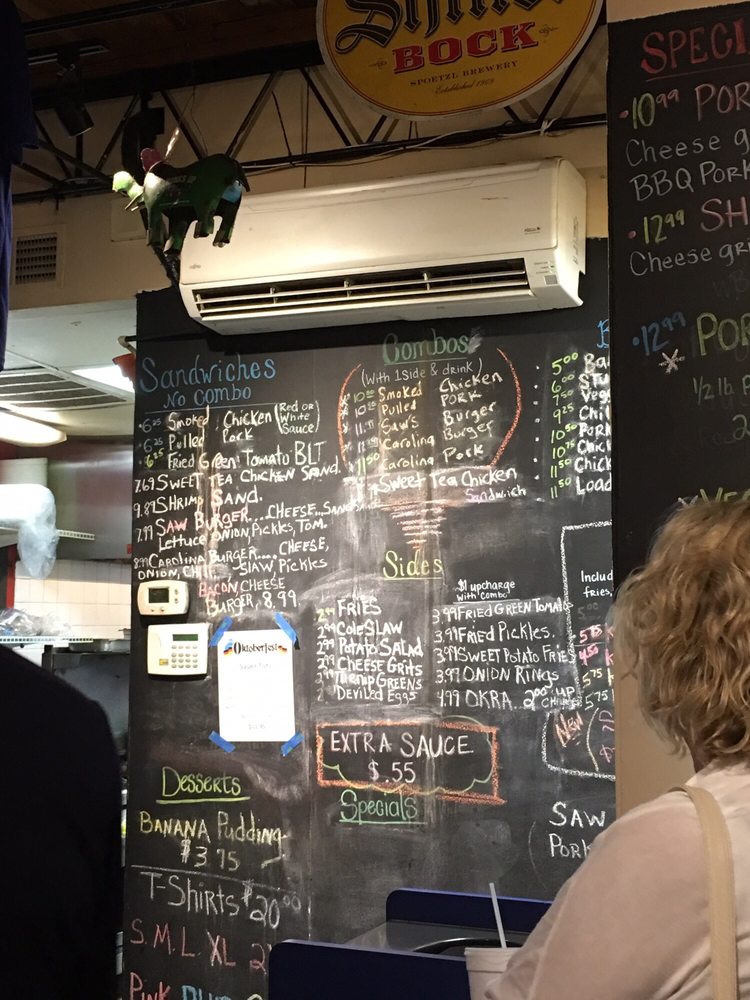 BOCK
SPOETZL BREWERY
Established 1909
Sandwiches
No Combo
6.25 Smoked Chicken (Red or White Sauce)
6.25 Pulled Pork
Fried Green Tomato BLT
7.69 Sweet Tea Chicken Sand.
9.89 Shrimp Sand.
7.99 Saw Burger....Cheese...
Lettuce Onion, Pickles, Tom.
8.99 Carolina Burger.... Cheese,
Onion, Slaw, Pickles
Bacon Cheese
Burger, 8.99
Oktoberfest
Desserts
Banana Pudding
$3.75
T-Shirts $20.00
S. M. L. XL
Pink
Combos
(With 1 Side & drink)
Smoked Chicken
Pulled Pork
Saw's Burger
Carolina Burger
11.50 Carolina Pork
Sweet Tea Chicken
Sandwich
Sides
2.99 Fries
2.99 Cole Slaw
2.99 Potato Salad
2.99 Cheese Grits
2.99 Turnip Greens
Deviled Eggs
$1 upcharge
with combo
3.99 Fried Green Tomato
3.99 Fried Pickles.
3.99 Sweet Potato Fries
3.99 Onion Rings
4.99 Okra
Extra Sauce
$.55
Specials
5.00
6.00
7.50
9.25
10.50
10.75
11.50
11.50 Load
Includ
fries,
New
Saw
Pork
Speci
•10.99 Por
Cheese g
BBQ Pork
•12.99 Sh
Cheese gr
•12.99 Por
1/2 lb